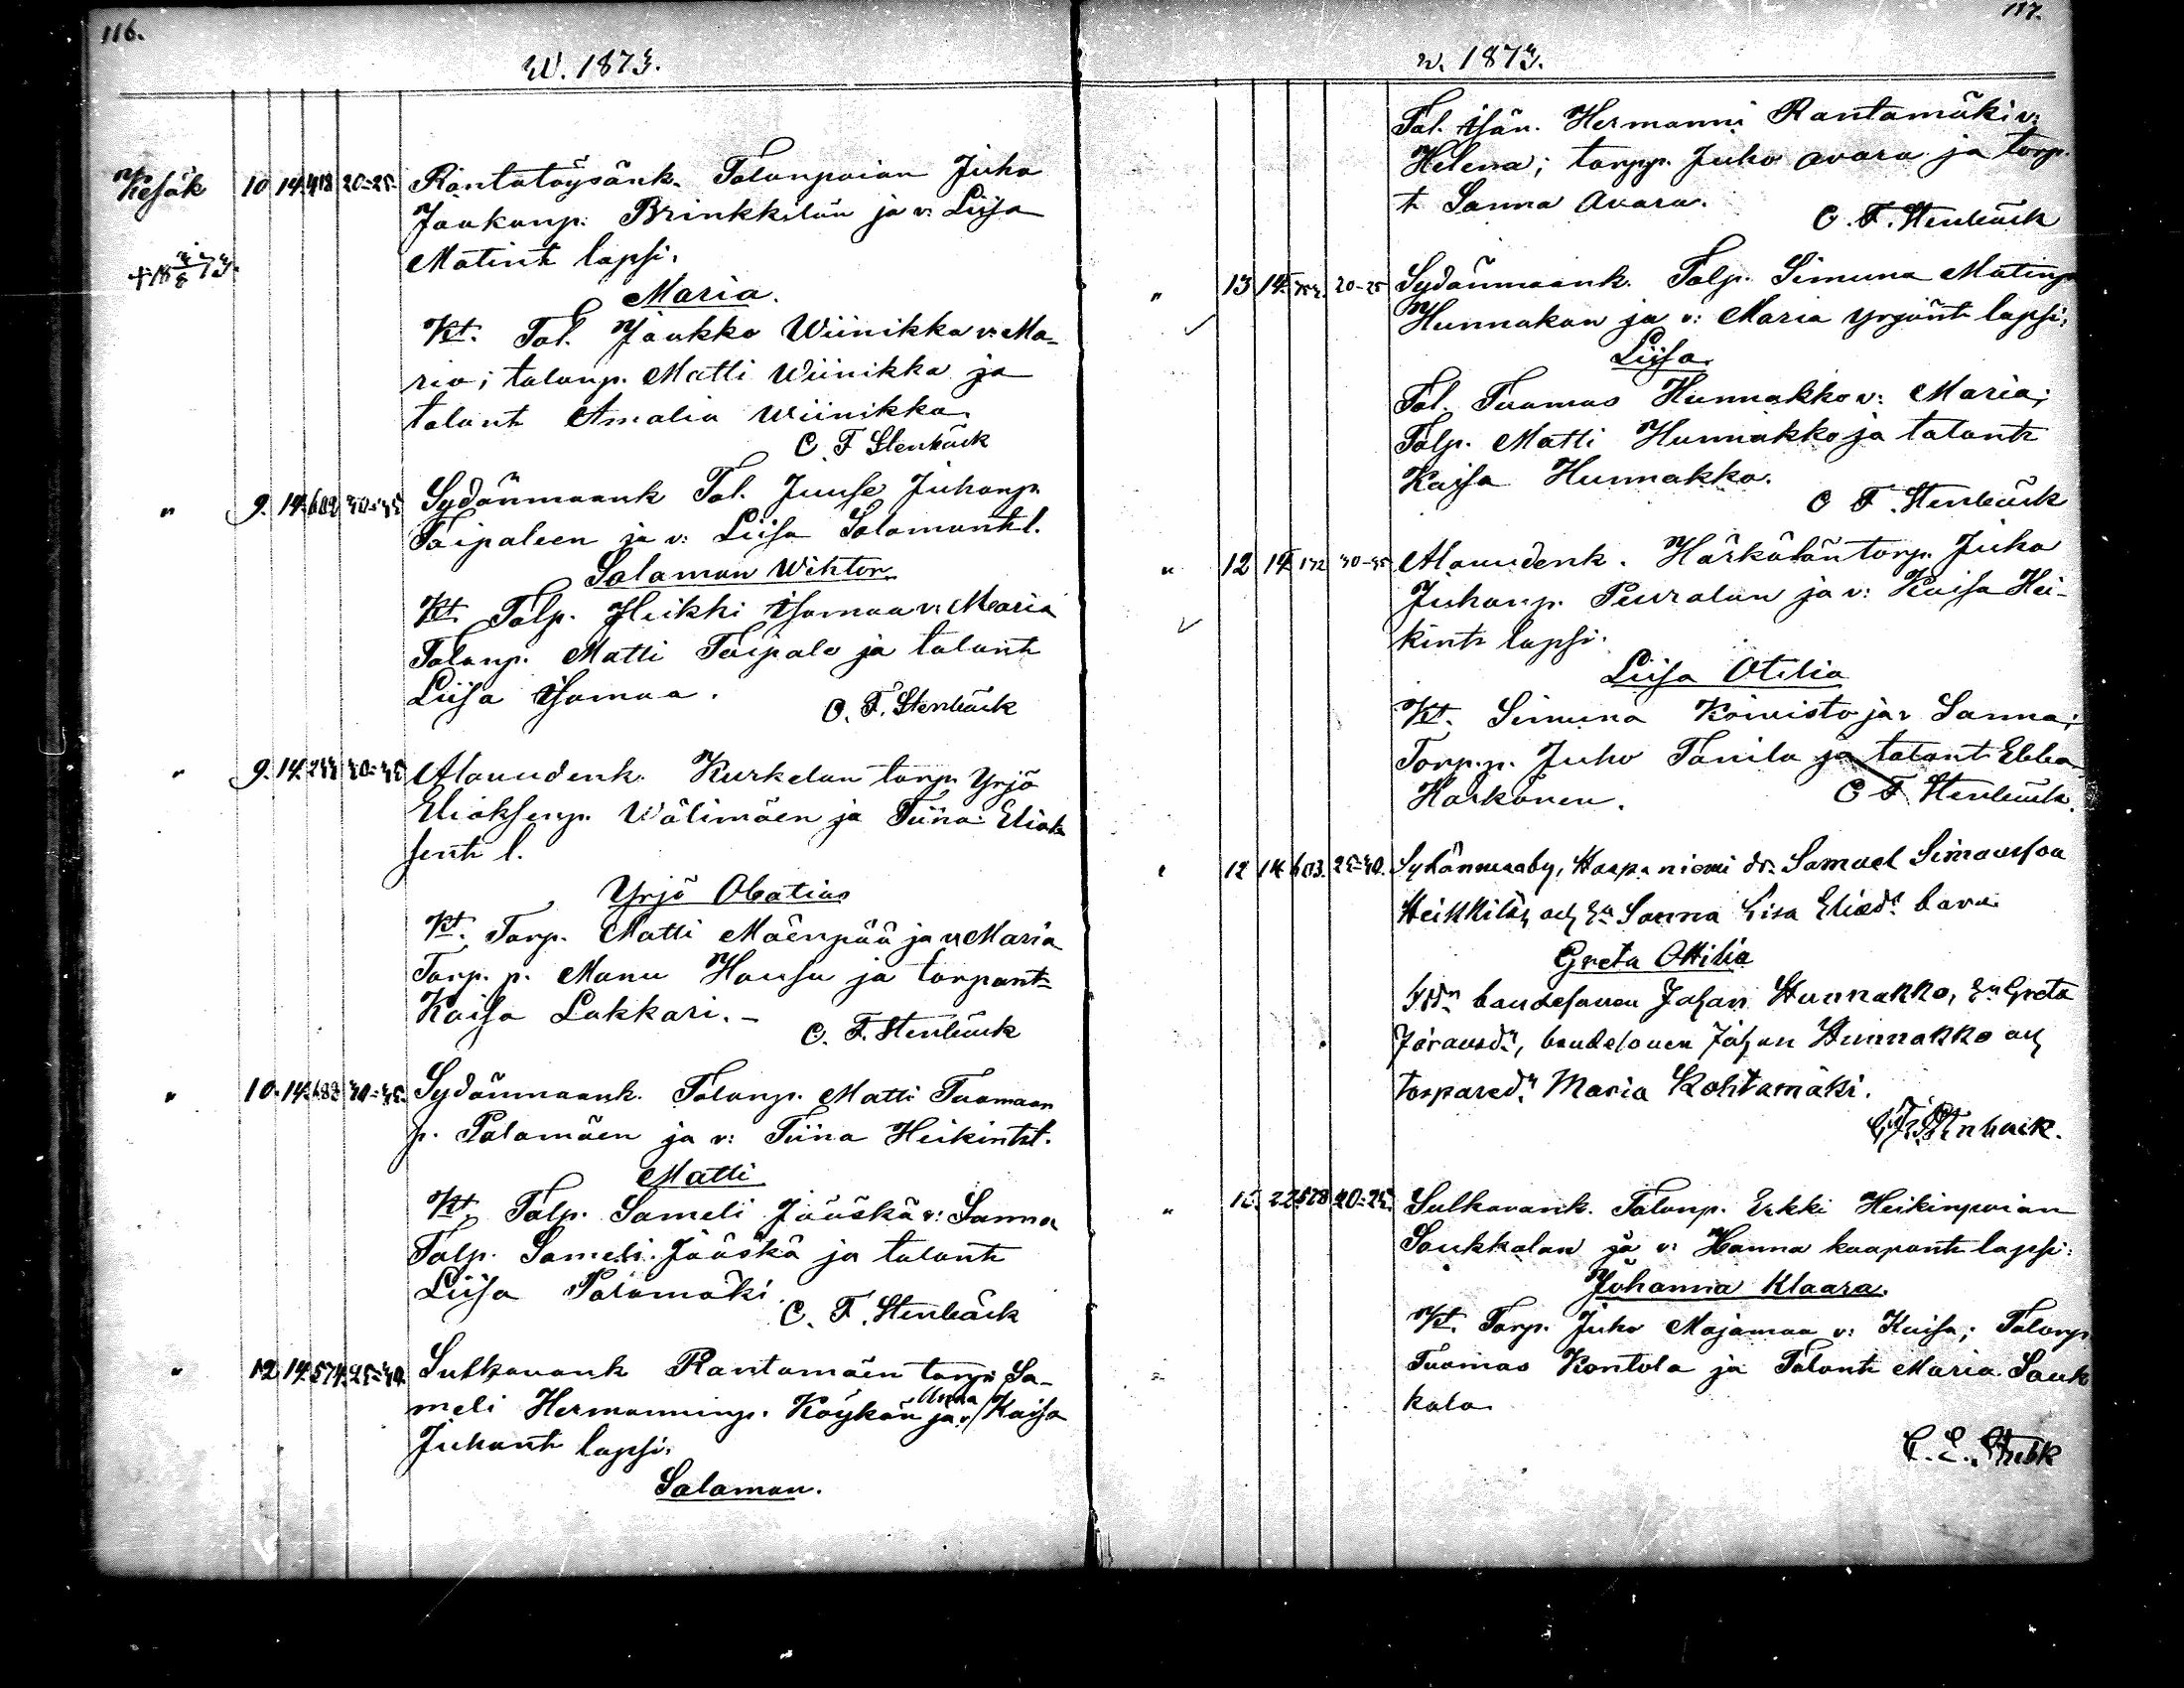 116.
W. 1873.
Kesäk 10 14. 418 20-25. Rantatöysänk. Talonpoian Juha
Jaakonp. Brinkkilän ja v: Liisa
Matint lapsi.
Maria.
Kt. Tal. Jaakko Wiinikka v: Ma-
ria; talonp. Matti Wiinikka ja
talont Amalia Wiinikka.
C. F Stenbäck
" 9. 14. 602 Sydänmaank Tal. Juuse Juhonp.
Taipaleen ja v: Liisa Salamont l.
Salamon Wiktor.
Kt. Talp. Heikki Isomaa v: Maria
Talonp. Matti Taipale ja talont
Liisa Isomaa.
C. F. Stenbäck
" 9. 14. Alavudenk. Kurkelan torp. Yrjö
Eliaksenp. Wälimäen ja Tiina Eliak
sent l.
Yrjö Obatias
Kt. Torp. Matti Mäenpää ja v: Maria
Torp. p. Manu Hausu ja torpant
Kaisa Lakkari. -
C. F. Stenbäck
" 10. 14. Sydänmaank. Talonp. Matti Tuomaan
p. Palomäen ja v: Tiina Heikint l.
Matti
Kt. Talp. Sameli Jääskä v: Sanna
Talp. Sameli Jääskä ja talont
Liisa Palomäki.
C. F. Stenbäck
" 12 14. 574. Sulkavank Rantamäen torp: Sa-
meli Hermanninp. Köykän ja v: Anna Kaisa
Juhont lapsi.
Salamon.
117.
w. 1873.
Tal. isän. Hermanni Rantamäki v:
Helena; torpp. Juho Avara ja torp.
t Sanna Avara.
C. F. Stenbäck
" 13 14. 20-25 Sydänmaank. Talp. Simuna Matinp
Hunnakon ja v: Maria Yrjönt lapsi;
Liisa
Tal. Tuomas Hunnakko v: Maria;
Talp. Matti Hunnakko ja talont
Kaisa Hunnakko.
C F. Stenbäck
" 12 14 172 Alavudenk. Härkösön torp. Juha
Juhonp. Peuralan ja v: Kaisa Hei-
kint lapsi.
Liisa Otilia
Kt. Simuna Koivisto ja v Sanna;
Torp.p. Juho Tanila ja talont Ebba
Harkonen.
C F. Stenbäck.
12 14 603. Sydänmaaby, Haapaniemi dr. Samuel Simonsson
Heikkilä, och hu Sanna Lisa Eliasdr barn.
Greta Ottilia
bondesonen Johan Hunnakko, hu Greta
Göransdr, bondesonen Johan Hunnakko och
torparedr Maria Kohtamäki.
" 22 578 Sulkavank. Talonp. Erkki Heikinpoian
Saukkolan ja v: Hanna kaapont lapsi:
Johanna Klaara.
Kt. Torp. Juho Majamaa v: Kaisa; Talonp
Tuomas Kontola ja Talont Maria Sauk
kola.